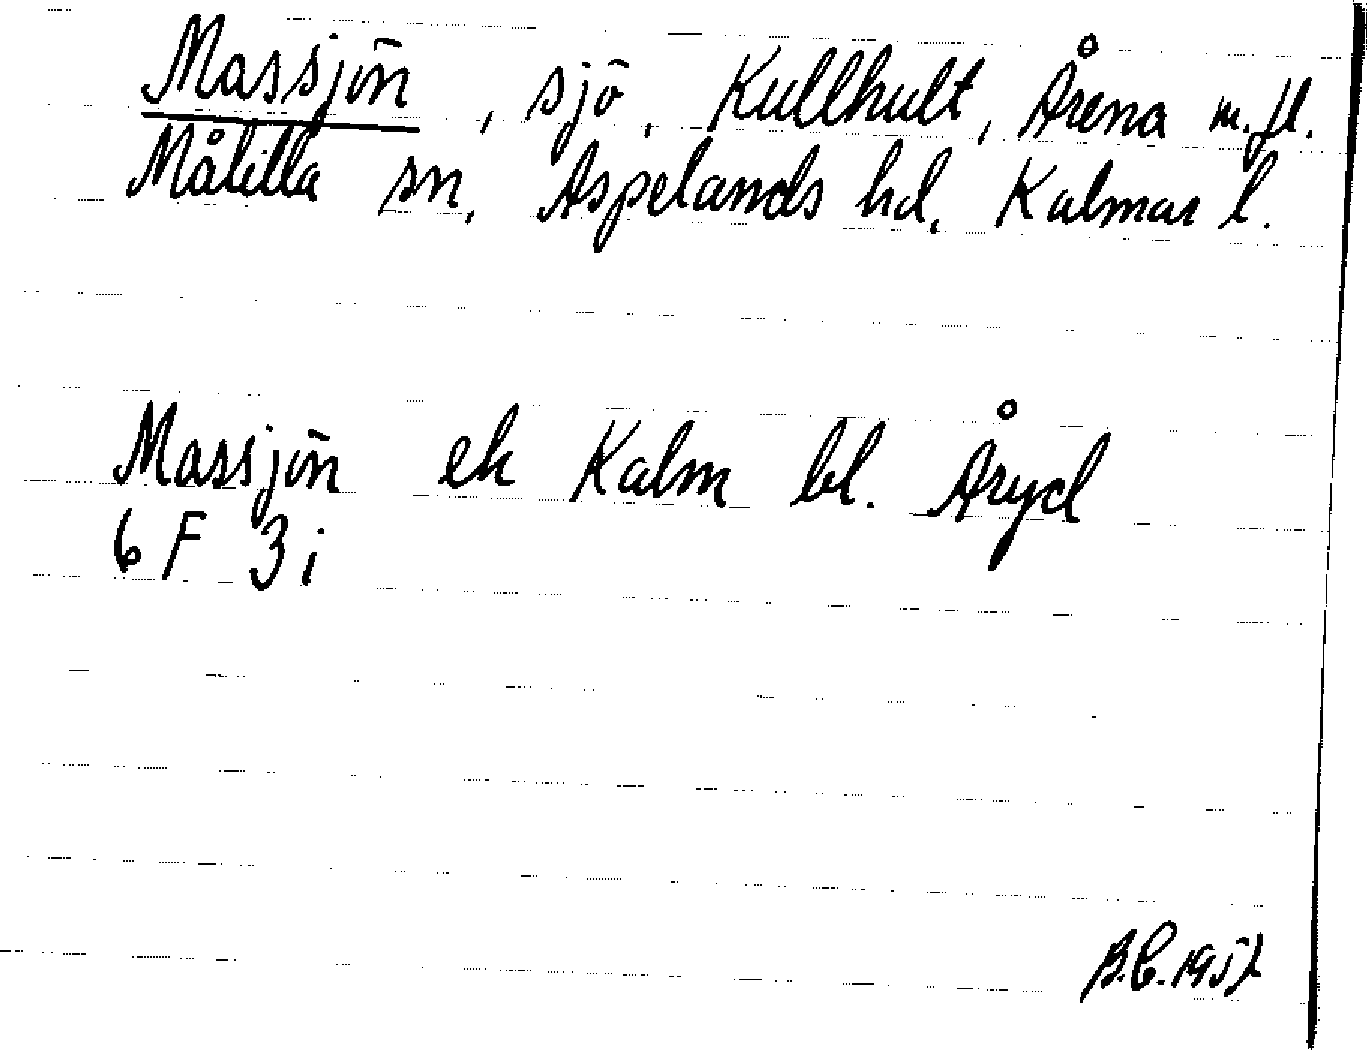 Massjön, sjö, Kullhult, Årena m.fl.
Målilla sn, Aspelands hd, Kalmar l.
Massjön ek Kalm bl. Åryd
6 F 3i
B.C. 1957